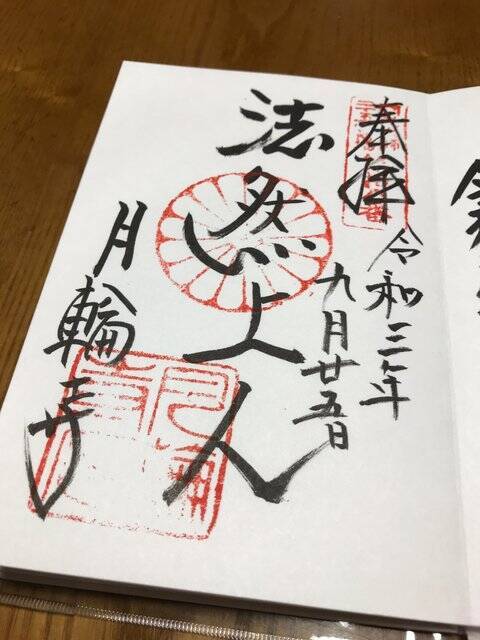 奉拝
令和三年
九月廿五日
法然上人
月輪寺